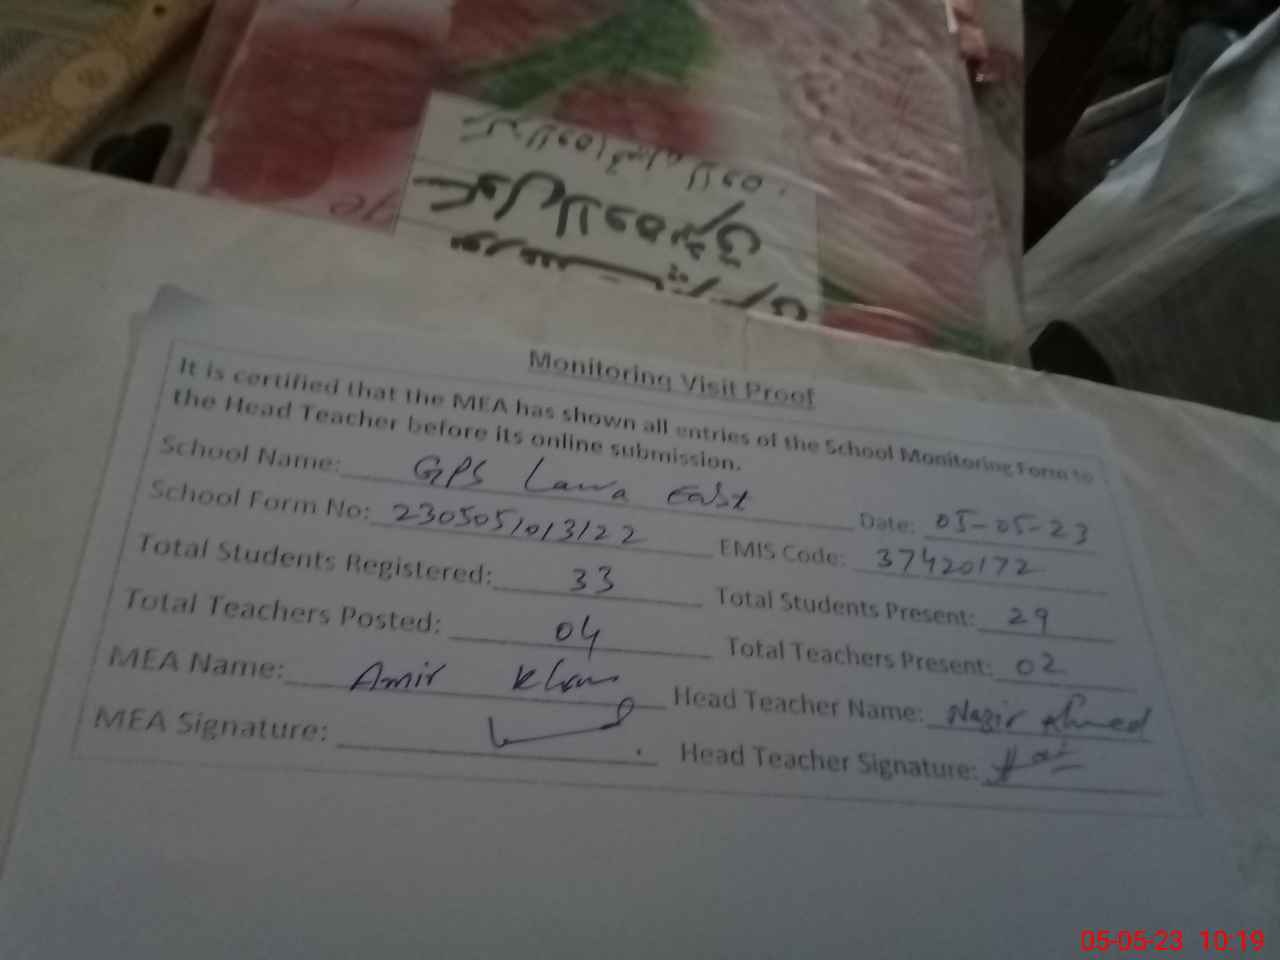 Monitoring Visit Proof
It is certified that the MEA has shown all entries of the School Monitoring Form to
the Head Teacher before its online submission.
School Name: GPS Lawa East Date: 05-05-23
School Form No: 2305051013122 EMIS Code: 37420172
Total Students Registered: 33 Total Students Present: 29
Total Teachers Posted: 04 Total Teachers Present: 02
MEA Name: Amir Khan Head Teacher Name: Nazir Ahmed
MEA Signature: Head Teacher Signature:
05-05-23 10:19